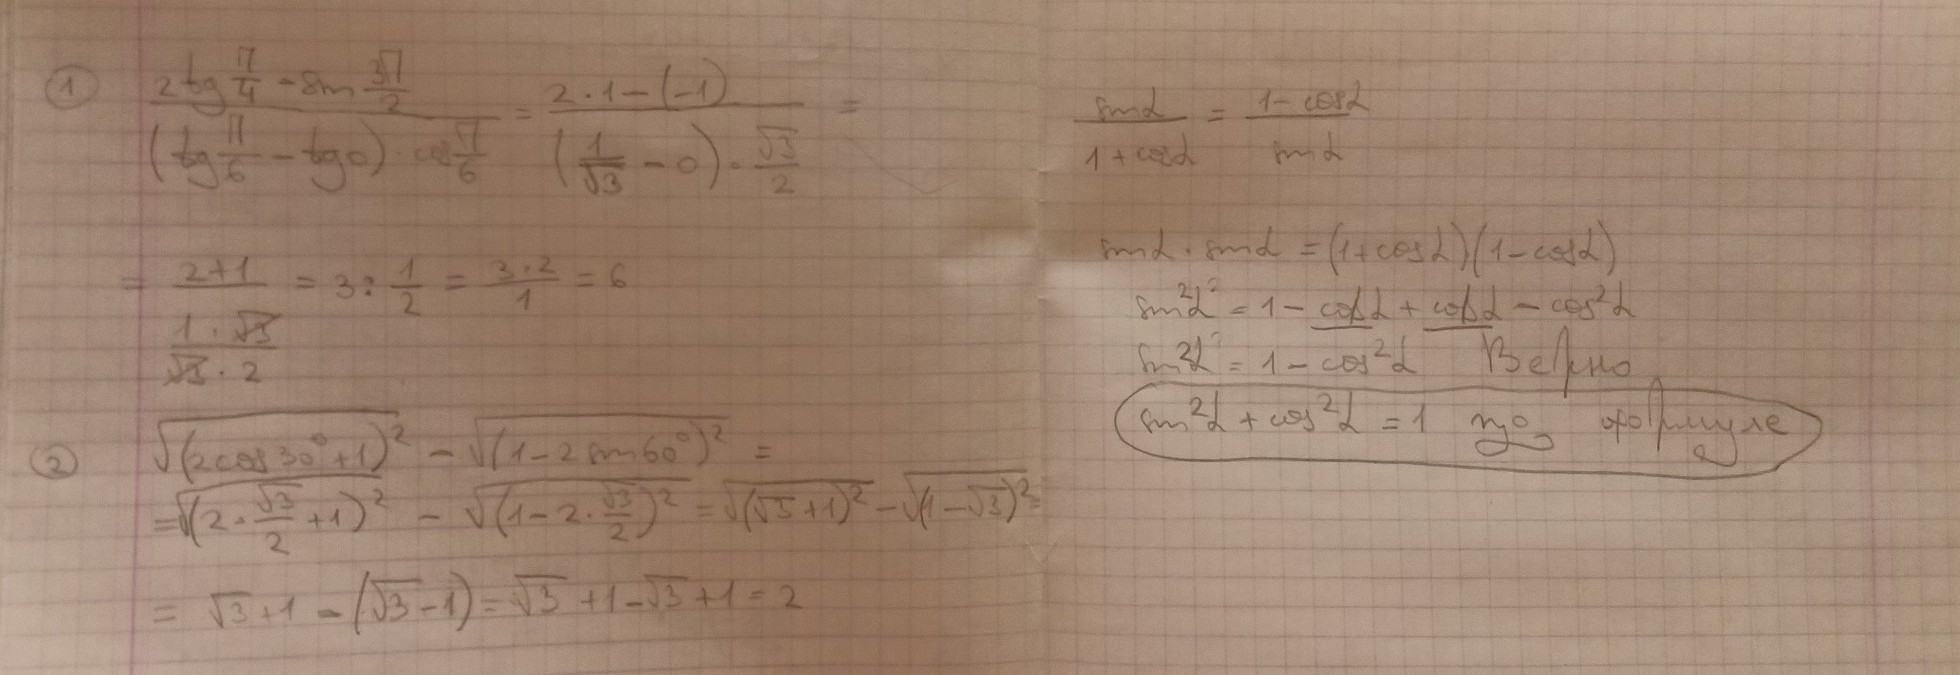 ① (2tg π/4 - sin 3π/2)/((tg π/6 - tg 0) · cos π/6) = (2·1-(-1))/((1/√3 - 0) · √3/2) =
= (2+1)/((1·√3)/(√3·2)) = 3 : 1/2 = (3·2)/1 = 6
② √(2cos30°+1)² - √(1-2sin60°)² =
= √(2·√3/2+1)² - √(1-2·√3/2)² = √(√3+1)² - √(1-√3)² =
= √3+1-(√3-1) = √3+1-√3+1 = 2
sinα/(1+cosα) = (1-cosα)/sinα
sinα · sinα = (1+cosα)(1-cosα)
sin²α = 1 - cosα + cosα - cos²α
sin²α = 1 - cos²α Верно
sin²α + cos²α = 1 по формуле